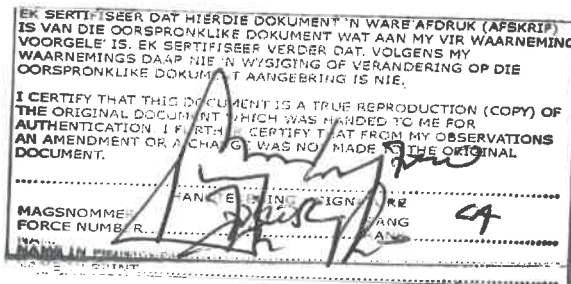 EK SERTIFISEER DAT HIERDIE DOKUMENT 'N WARE AFDRUK (AFSKRIF)
IS VAN DIE OORSPRONKLIKE DOKUMENT WAT AAN MY VIR WAARNEMING
VOORGELE' IS. EK SERTIFISEER VERDER DAT, VOLGENS MY
WAARNEMINGS DAAR NIE 'N WYSIGING OF VERANDERING OP DIE
OORSPRONKLIKE DOKUMENT AANGEBRING IS NIE.
I CERTIFY THAT THIS DOCUMENT IS A TRUE REPRODUCTION (COPY) OF
THE ORIGINAL DOCUMENT WHICH WAS HANDED TO ME FOR
AUTHENTICATION. I FURTHER CERTIFY THAT FROM MY OBSERVATIONS
AN AMENDMENT OR A CHANGE WAS NOT MADE TO THE ORIGINAL
DOCUMENT.
MAGSNOMMER RANG
FORCE NUMBER CA